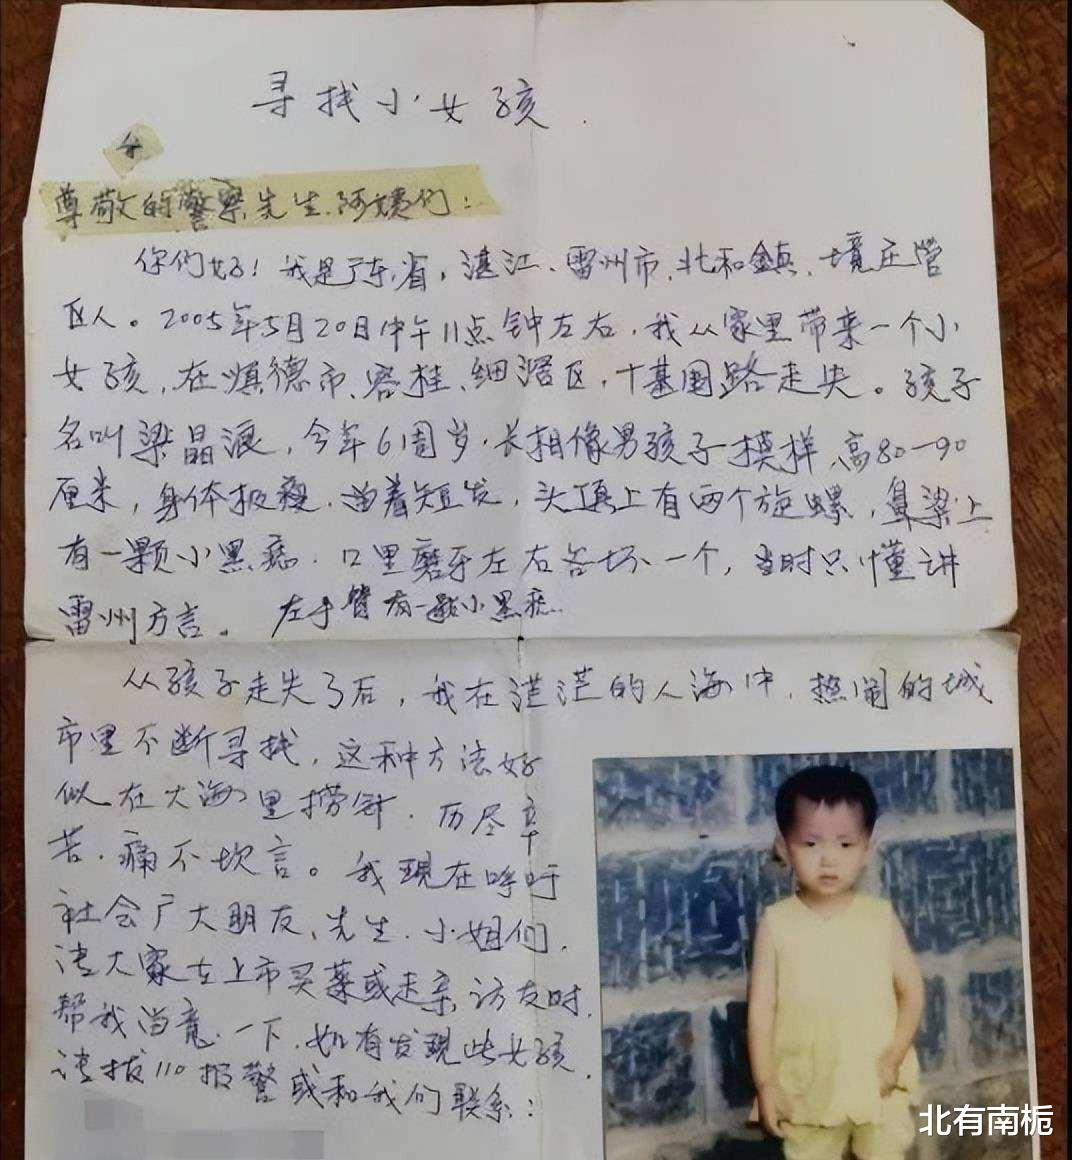 寻找小女孩.
尊敬的警察先生.阿姨们:
你们好!我是广东省,湛江、雷州市、北和鎮、境庄管
区人。2005年5月20日中午11点钟左右,我从家里带来一个小
女孩,在顺德市、容桂、细滘区,十基围路走失。孩子
名叫梁晶浪,今年6周岁,长相像男孩子模样,高80-90
厘米,身体极瘦,留着短发,头顶上有两个旋螺,鼻梁上
有一颗小黑痣.口里磨牙左右各坏一个,当时只懂讲
雷州方言。左手臂有一颗小黑痣
从孩子走失了后,我在茫茫的人海中,热闹的城
市里不断寻找,这种方法好
似在大海里捞针.历尽辛
苦.痛不坎言。我現在呼吁
社会广大朋友、先生.小姐们,
请大家在上市买菜或走亲访友时,
帮我留意一下,如有发現此女孩,
请拔110报警或和我们联系:
北有南栀